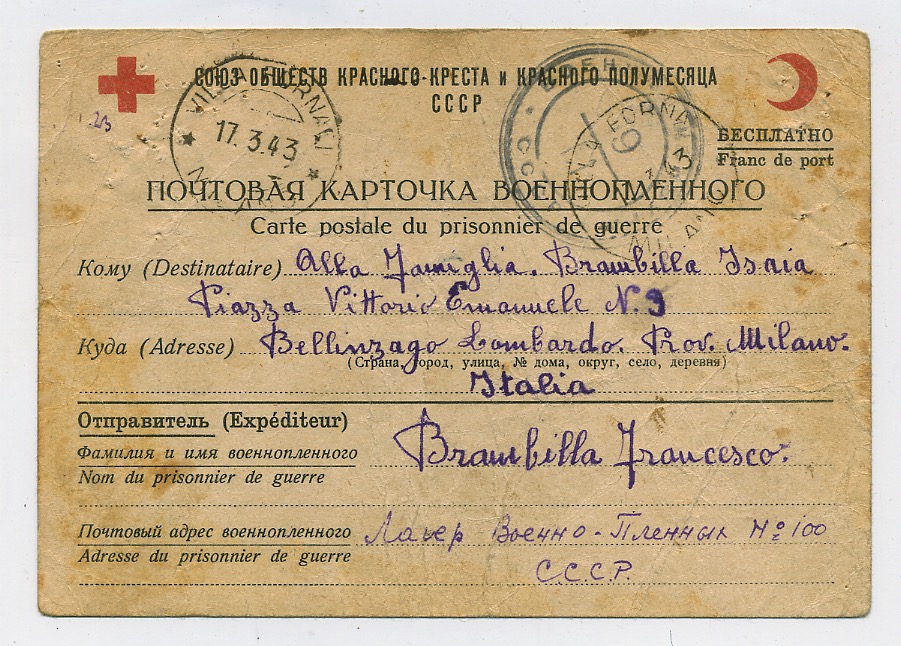 СОЮЗ ОБЩЕСТВ КРАСНОГО КРЕСТА и КРАСНОГО ПОЛУМЕСЯЦА
СССР
17.3.43
MILANO
БЕСПЛАТНО
Franc de port
ПОЧТОВАЯ КАРТОЧКА ВОЕННОПЛЕННОГО
Carte postale du prisonnier de guerre
Кому (Destinataire) Alla Famiglia. Brambilla Isaia
Piazza Vittorio Emanuele N. 9
Куда (Adresse) Bellinzago Lombardo. Prov. Milano.
(Страна, город, улица, № дома, округ, село, деревня)
Italia
Отправитель (Expéditeur)
Фамилия и имя военнопленного Brambilla Francesco.
Nom du prisonnier de guerre
Почтовый адрес военнопленного Лагер Военно-Пленных № 100
Adresse du prisonnier de guerre
С.С.С.Р.